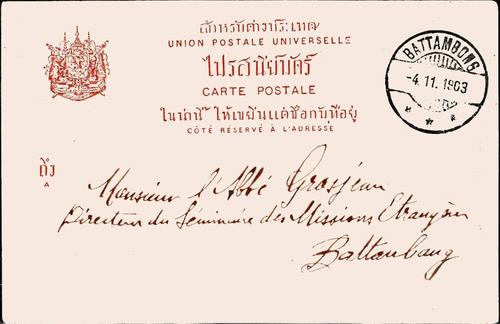 สำหรับต่างประเทศ
UNION POSTALE UNIVERSELLE
ไปรสนียบัตร์
CARTE POSTALE
ในน่านี้ ให้เขียนแต่ชื่อกับที่อยู่
CÔTÉ RÉSERVÉ A L'ADRESSE
BATTAMBONG
-4.11.1903
ถึง
A
Monsieur l'Abbé Grosjean
Directeur du Séminaire des Missions Etrangères
Battanbang